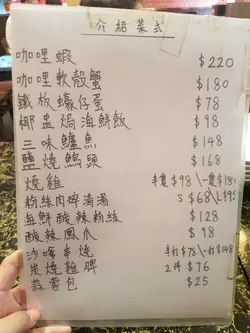 介紹菜式
咖哩蝦 $220
咖哩軟殼蟹 $180
鐵板蠔仔蛋 $78
椰盅焗海鮮飯 $98
三味鱸魚 $148
鹽燒鱆頭 $168
燒雞 半隻$98\一隻$18
粉絲肉碎清湯 S $68\L$9
海鮮酸辣粉絲 $128
酸辣鳳爪 $98
沙嗲串燒 半打$78\一打$148
炭燒雞髀 2件 $76
蒜蓉包 $25